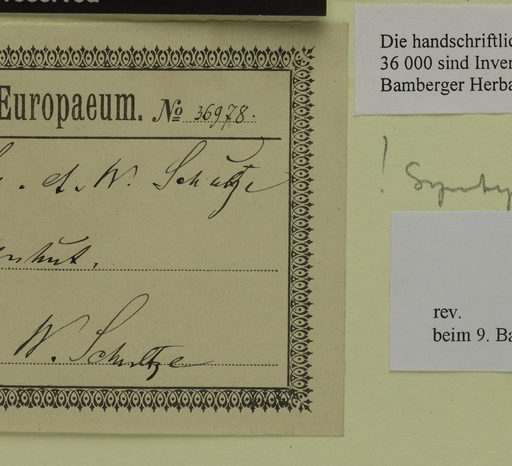 reserved
Europaeum. No 36978.
. A. W. Schultze
W. Schultze
Die handschriftlic
36 000 sind Inven
Bamberger Herba
! Syntyp
rev.
beim 9. Ba